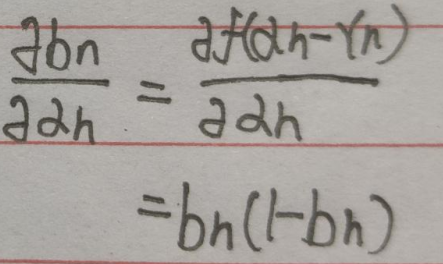 ∂bn/∂αn = ∂f(αn-γn)/∂αn
=bn(1-bn)